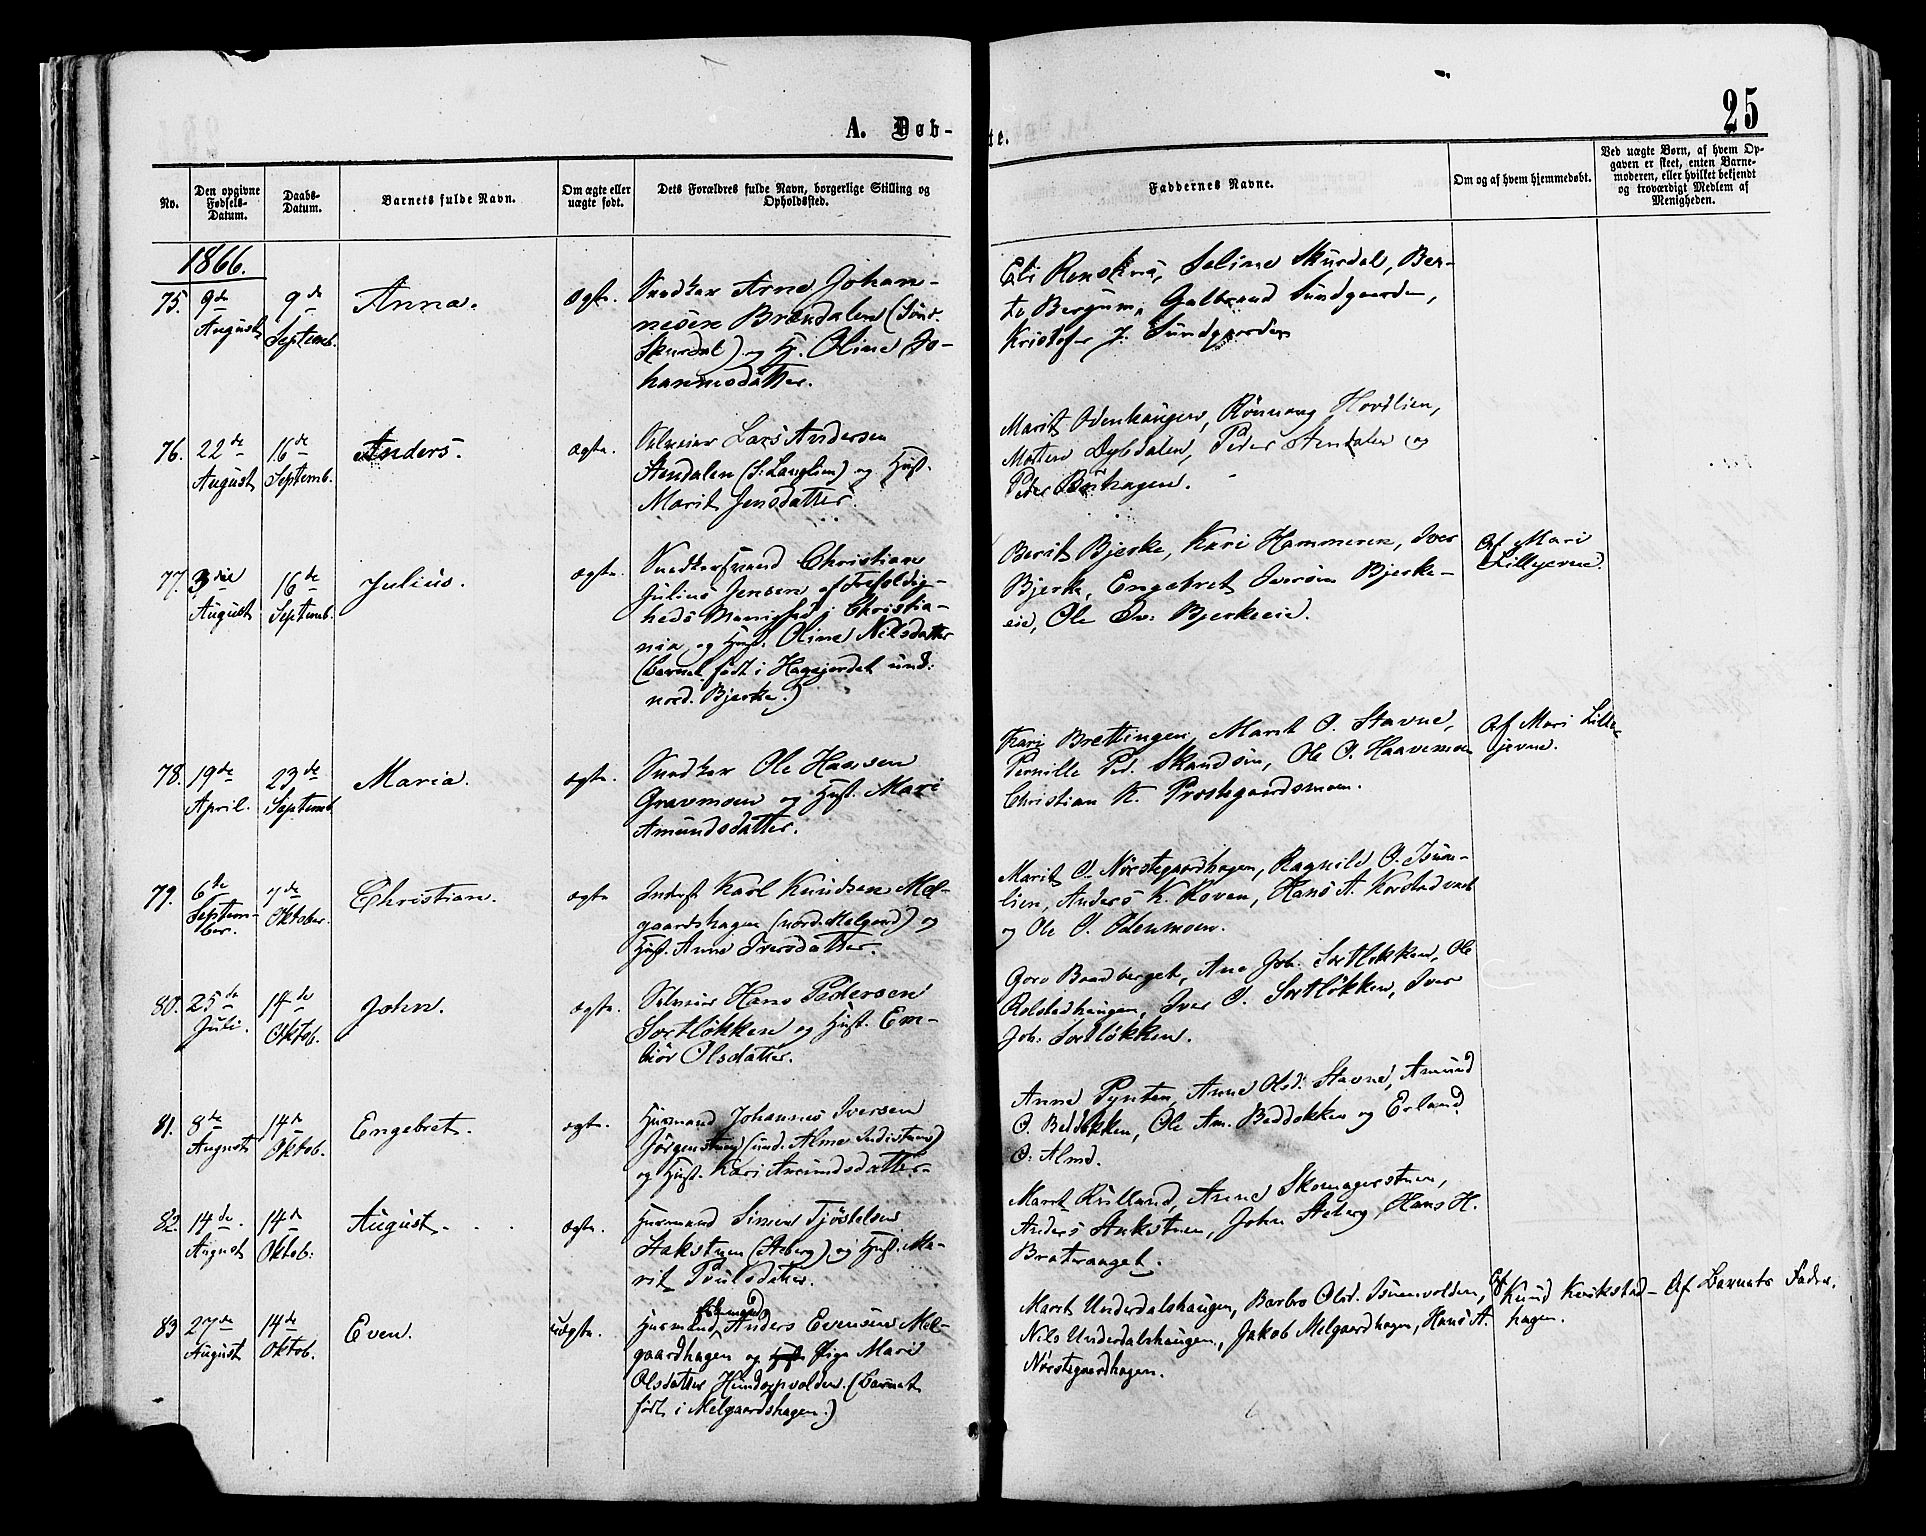 25
A. Døb-
te.
No.
Den opgivne Fødsels-Datum.
Daabs-Datum.
Barnets fulde Navn.
Om ægte eller uægte født.
Dets Forældres fulde Navn, borgerlige Stilling og Opholdssted.
Faddernes Navne.
Om og af hvem hjemmedøbt.
Ved uægte Børn, af hvem Opgaven er skeet, enten Barnemoderen, eller hvilket bekjendt og troværdigt Medlem af Menigheden.
1866.
75.
9de August
9de Septemb.
Anna.
ægte.
Snedker Arne Johan-
nesen Brændalen (Sønd.
Skurdal) og H. Oline Jo-
hannesdatter.
Eli Seline Skurdal, Ber-
te Bergum, Gulbrand Sundgaarden,
Kristofer J. Sundgaarden
76.
22de August
16de Septemb.
Anders.
ægte.
Lars Andersen
Stendalen (S. Langlien) og Hust.
Marit Jensdatter.
Marit Odenhaugen, Rønnaug Hovdlien,
Morten Dybdalen, Peder Stendalen og
Peder Børhagen.
77.
3die August
16de Septemb.
Julius.
ægte.
Snedkersvend Christian
Julius Jensen af Trefoldig-
heds Menighed i Christia-
nia og Hust. Oline Nilsdatter
(barnet født i Hagejordet und.
nord. Bjerke.)
Berit Bjerke, Kari Hammeren, Iver
Bjerke, Engebret Iversen Bjerke-
eie, Ole Iv. Bjerkeeie.
Af Mari
Lillejevne.
78.
19de April.
23de Septemb.
Maria.
ægte.
Snedker Ole Hansen
Gravmoen og Hust. Mari
Amundsdatter.
Kari Brettingen, Marit O. Stavne,
Pernille Ped. Skandsen, Ole O. Haavemoen
Christian K. Prestgaardsmoen.
Af Mari Lille-
jevne.
79.
6te September.
7de Oktober.
Christian.
ægte
Inderst Karl Knudsen Mel-
gaardshagen (nord. Melgaard) og
Hust. Anne Iversdatter.
Marit O. Nørstegaardhagen, Ragnild O. Isum-
lien, Anders K. Koven, Hans A. Korstadvaeb
og Ole O. Odenmoen.
80.
25de Juli.
14de Oktob.
John.
ægte.
Selveier Hans Pedersen
Sortløkken og Hust. Em-
biør Olsdatter.
Goro Brandberget, Ane Joh. Sortløkken, Ole
Rolstadhaugen, Iver O. Sortløkken, Iver
Joh. Sortløkken.
81.
8de August
14de Oktob.
Engebret.
ægte.
Husmand Johannes Iversen
Jørgenstuen (und. Alme Indistuen)
og Hust. Kari Amundsdatter.
Anne Pynten, Anne Olsd. Stavne, Amund
O. Beddokken, Ole Am. Beddokken og Erland
O. Almo.
82.
14de August
14de Oktob.
August.
ægte.
Husmand Simen Tjøstelsen
Stakstuen (Aaberg) og Hust. Ma-
rit Poulsdatter.
Marit Rulland, Anne Skomagerstuen,
Anders Stakstuen, John Aaberg, Hans H.
Bratvanget.
83
27de August
14de Oktob.
Even.
uægte.
Husmand Anders Evensen Mel-
gaardhagen og Pige Mari
Olsdatter Hundorpvolden. (barnet
født i Melgaardshagen.)
Marit Underdalshaugen, Barbro Olsd. Isumvolden,
Nils Underdalshaugen, Jakob Melgaardhagen, Hans A.
Nørstegaardhagen.
Af Knud Kvikstad-
hagen.
Af Barnets Fader.